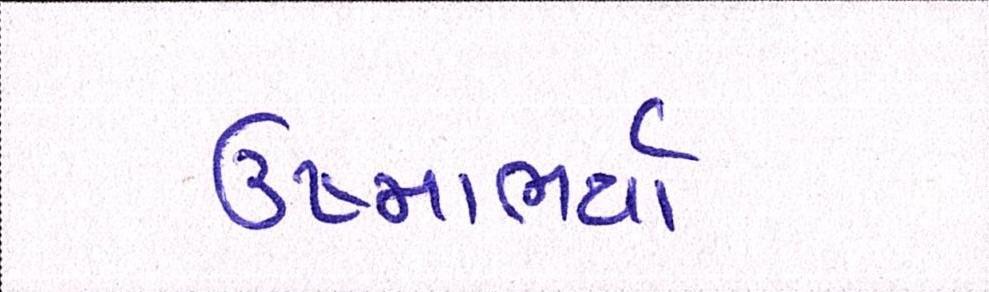 ઉષ્માભર્યા